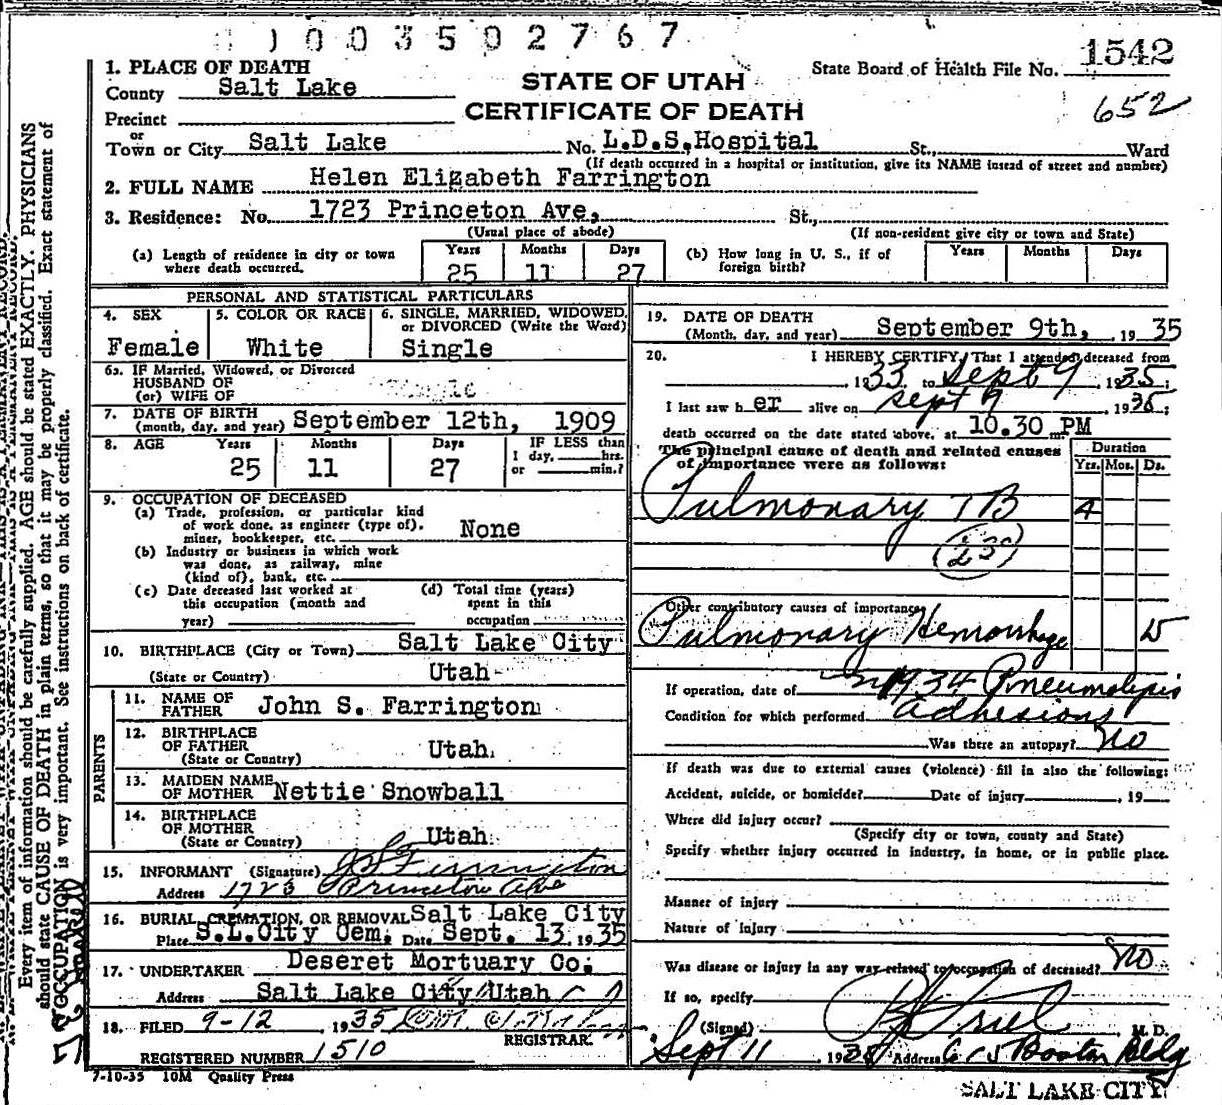 1003502767
1542
652
STATE OF UTAH
CERTIFICATE OF DEATH
State Board of Health File No.
1. PLACE OF DEATH
County Salt Lake
Precinct
or
Town or City Salt Lake No. L.D.S. Hospital St., Ward
(If death occurred in a hospital or institution, give its NAME instead of street and number)
2. FULL NAME Helen Elizabeth Farrington
3. Residence: No. 1723 Princeton Ave, St.,
(Usual place of abode) (If non-resident give city or town and State)
(a) Length of residence in city or town where death occurred. Years 25 Months 11 Days 27
(b) How long in U. S., if of foreign birth? Years Months Days
PERSONAL AND STATISTICAL PARTICULARS
4. SEX Female
5. COLOR OR RACE White
6. SINGLE, MARRIED, WIDOWED, or DIVORCED (Write the Word) Single
6a. IF Married, Widowed, or Divorced
HUSBAND OF
(or) WIFE OF
7. DATE OF BIRTH
(month, day, and year) September 12th, 1909
8. AGE Years 25 Months 11 Days 27
IF LESS than
1 day, hrs.
or min.?
9. OCCUPATION OF DECEASED
(a) Trade, profession, or particular kind
of work done, as engineer (type of),
miner, bookkeeper, etc. None
(b) Industry or business in which work
was done, as railway, mine
(kind of), bank, etc.
(c) Date deceased last worked at
this occupation (month and
year)
(d) Total time (years)
spent in this
occupation
10. BIRTHPLACE (City or Town) Salt Lake City
(State or Country) Utah
PARENTS
11. NAME OF
FATHER John S. Farrington
12. BIRTHPLACE
OF FATHER
(State or Country) Utah
13. MAIDEN NAME
OF MOTHER Nettie Snowball
14. BIRTHPLACE
OF MOTHER
(State or Country) Utah
15. INFORMANT (Signature) J S Farrington
Address 1723 Princeton Ave
16. BURIAL, CREMATION, OR REMOVAL Salt Lake City
Place S.L.City Cem. Date Sept. 13, 1935
17. UNDERTAKER Deseret Mortuary Co.
Address Salt Lake City Utah
18. FILED 9-12, 1935
REGISTRAR
REGISTERED NUMBER 1510
7-10-35 10M Quality Press
19. DATE OF DEATH
(Month, day, and year) September 9th, 1935
20. I HEREBY CERTIFY, That I attended deceased from
1933 to Sept 9, 1935;
I last saw her alive on Sept 9 1935;
death occurred on the date stated above, at 10.30 m. PM
The principal cause of death and related causes
of importance were as follows:
Duration
Yrs. Mos. Ds.
Pulmonary TB 4
Other contributory causes of importance
Pulmonary Hemorrhage
If operation, date of 1934 Pneumolysis
Condition for which performed adhesions
Was there an autopsy? no
If death was due to external causes (violence) fill in also the following:
Accident, suicide, or homicide? Date of injury , 19
Where did injury occur?
(Specify city or town, county and State)
Specify whether injury occurred in industry, in home, or in public place.
Manner of injury
Nature of injury
Was disease or injury in any way related to occupation of deceased? No
If so, specify
(Signed) M. D.
Sept 11 1935 Address Boston Bldg
SALT LAKE CITY
Every item of information should be carefully supplied. AGE should be stated EXACTLY. PHYSICIANS
should state CAUSE OF DEATH in plain terms, so that it may be properly classified. Exact statement of
OCCUPATION is very important. See instructions on back of certificate.